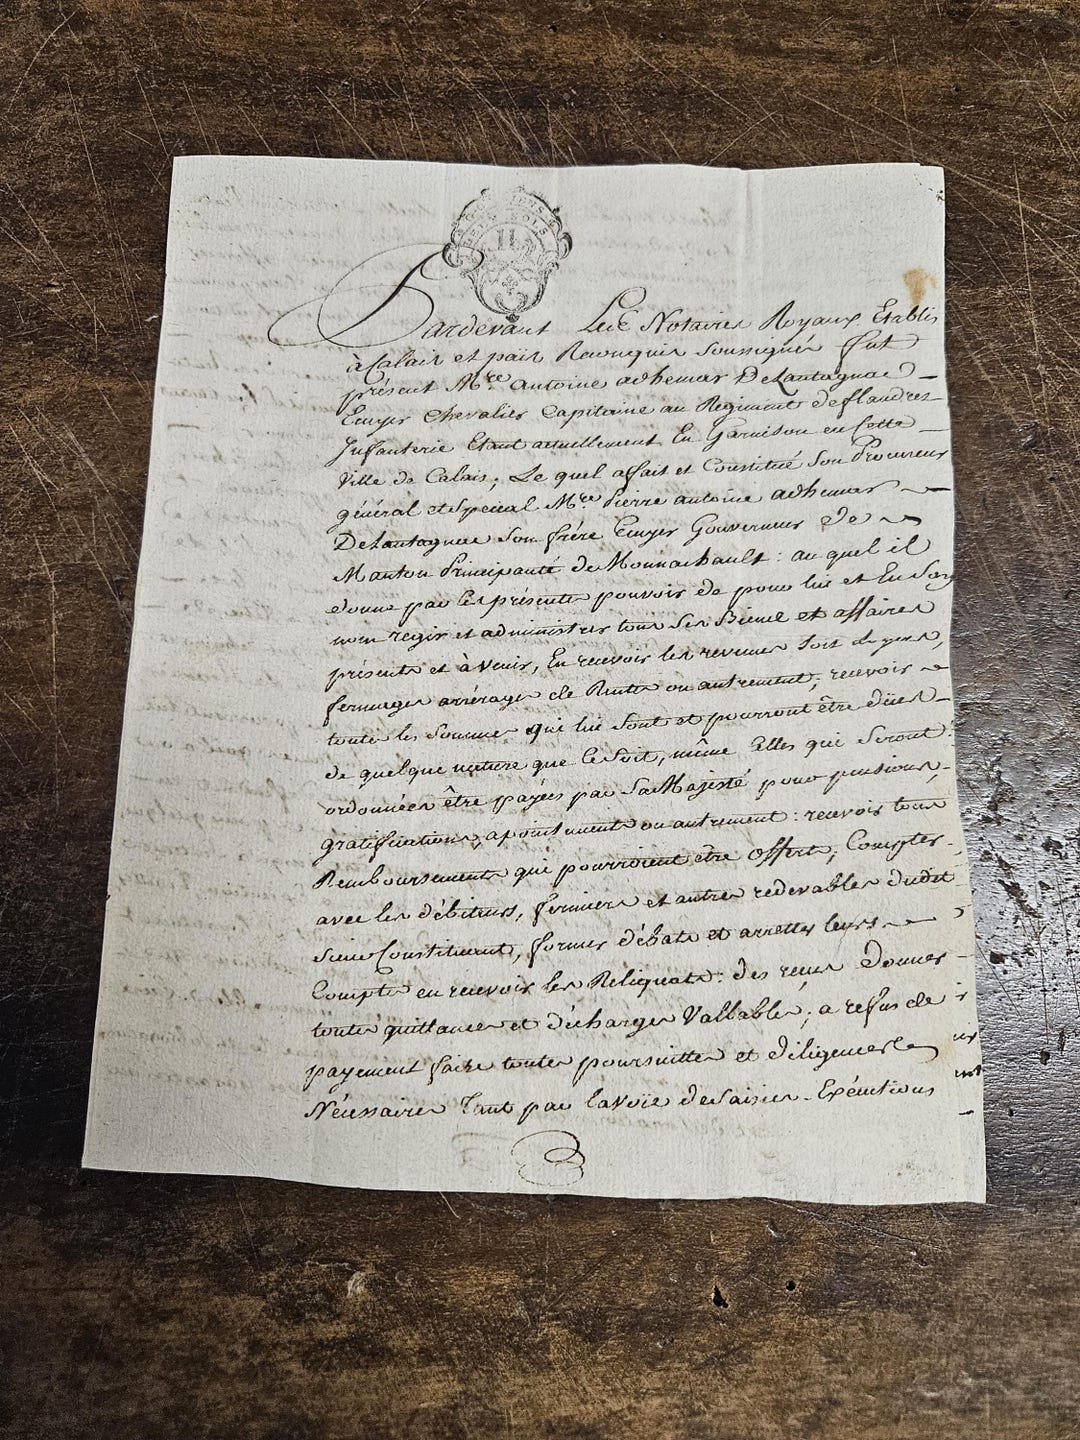 DEUX SOLS
Pardevant Les Notaires Royaux Etablis
à Calais et païs Reconquis soussignés fut
présent Mre. Antoine adhemar DeLantagnac
Ecuyer Chevalier Capitaine au Regiment deflandres
Infanterie Etant actuellement En Garnison en Cette
Ville de Calais; Le quel a fait et Constitué Son Procureur
général et Spécial Mre. Pierre antoine adhemar
DeLantagnac Son frére Ecuyer Gouverneur de
Manton Principauté de Monnachault: au quel il
donne par les présentes pouvoir de pour lui et En Son
nom regir et administrer tous Ses Biens et affaires
présents et à venir, En recevoir les revenus Soit Loyers,
fermages arrérages de Rentes ou autrement; recevoir
toutes les Sommes qui lui Sont et pourront être düës
de quelque nature que ce Soit, même Elles qui Seront
ordonnées être payées par Sa Majesté pour pensions,
gratifications, apointments ou autrement: recevoir tous
Remboursements qui pourroient etre offerts, Compter
avec les débiteurs, fermiers et autres redevables dudit
Sieur Constituant, former débats et arretter leurs
Comptes en recevoir les Reliquats: des reçus Donner
toutes quittances et décharges Vallables; a refus de
payement faire toutes poursuittes et diligences
Nécessaires Tant par la voie de Saisies Exécutions